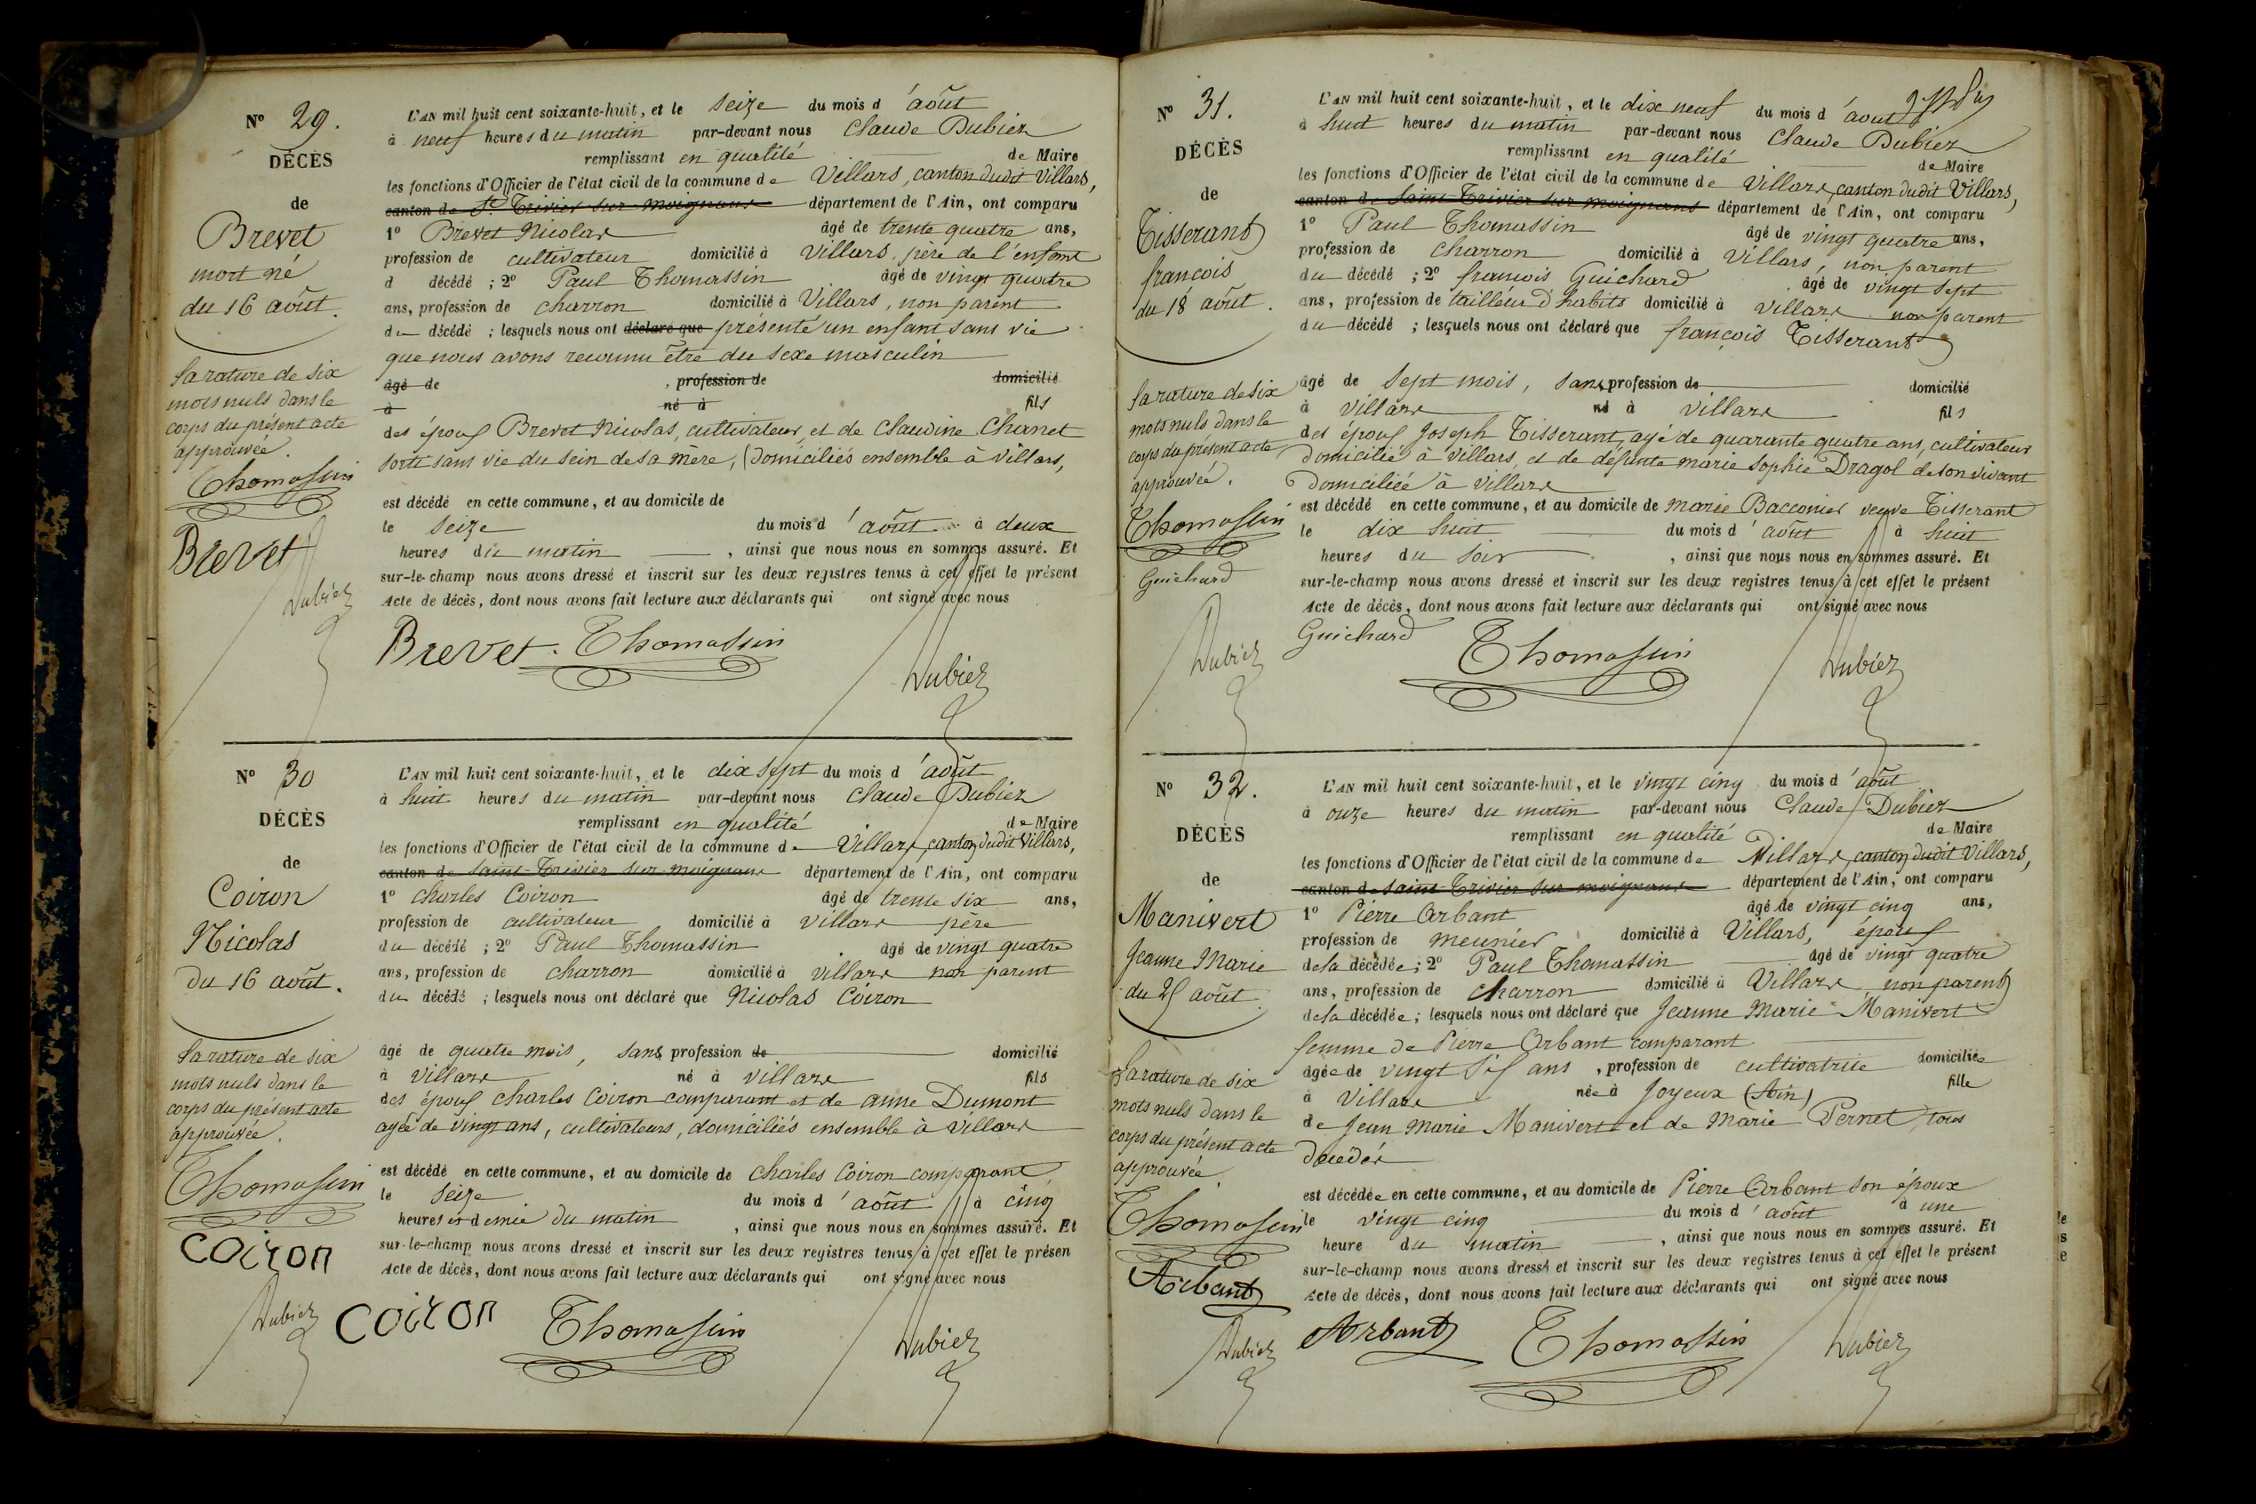 N° 29.
DÉCÈS
de
Brevet
mort né
du 16 août.
La rature de six
mots nuls dans le
corps du présent acte
approuvée.
Thomassin
Brevet
Dubiez
L'AN mil huit cent soixante-huit, et le seize du mois d'août
à neuf heures du matin par-devant nous Claude Dubiez
remplissant en qualité de Maire
les fonctions d'Officier de l'état civil de la commune de Villars, canton dudit Villars,
canton de St Trivier sur moignans département de l'Ain, ont comparu
1° Brevet Nicolas âgé de trente quatre ans,
profession de cultivateur domicilié à Villars, père de l'enfant
d décédé ; 2° Paul Thomassin âgé de vingt quatre
ans, profession de charron domicilié à Villars, non parent
du décédé ; lesquels nous ont déclaré que présenté un enfant sans vie
que nous avons reconnu être du sexe masculin
âgé de , profession de domicilié
à né à fils
des époux Brevet Nicolas, cultivateur, et de Claudine Chanet
sorti sans vie du sein de sa mère, (domiciliés ensemble à Villars,
est décédé en cette commune, et au domicile de
le seize du mois d'août à deux
heures du matin , ainsi que nous nous en sommes assuré. Et
sur-le-champ nous avons dressé et inscrit sur les deux registres tenus à cet effet le présent
Acte de décès, dont nous avons fait lecture aux déclarants qui ont signé avec nous
Brevet. Thomassin
Dubiez
N° 30
DÉCÈS
de
Coiron
Nicolas
du 16 août.
La rature de six
mots nuls dans le
corps du présent acte
approuvée.
Thomassin
Coiron
Dubiez
L'AN mil huit cent soixante-huit, et le dix sept du mois d'août
à huit heures du matin par-devant nous Claude Dubiez
remplissant en qualité de Maire
les fonctions d'Officier de l'état civil de la commune de Villars, canton dudit Villars,
canton de Saint Trivier sur moignans département de l'Ain, ont comparu
1° Charles Coiron âgé de trente six ans,
profession de cultivateur domicilié à Villars père
du décédé ; 2° Paul Thomassin âgé de vingt quatre
ans, profession de charron domicilié à Villars non parent
du décédé ; lesquels nous ont déclaré que Nicolas Coiron
âgé de quatre mois, sans profession de domicilié
à Villars né à Villars fils
des époux Charles Coiron comparant et de anne Dumont
agée de vingt ans, cultivateurs, domiciliés ensemble à Villars
est décédé en cette commune, et au domicile de Charles Coiron comparant
le seize du mois d'août à cinq
heures et demie du matin , ainsi que nous nous en sommes assuré. Et
sur-le-champ nous avons dressé et inscrit sur les deux registres tenus à cet effet le présen
Acte de décès, dont nous avons fait lecture aux déclarants qui ont signé avec nous
Coiron Thomassin
Dubiez
N° 31.
DÉCÈS
de
Tisserant
françois
du 18 août.
La rature de six
mots nuls dans le
corps du présent acte
approuvée.
Thomassin
Guichard
Dubiez
L'AN mil huit cent soixante-huit, et le dix neuf du mois d'août
à huit heures du matin par-devant nous Claude Dubiez
remplissant en qualité de Maire
les fonctions d'Officier de l'état civil de la commune de Villars, canton dudit Villars,
canton de Saint Trivier sur moignans département de l'Ain, ont comparu
1° Paul Thomassin âgé de vingt quatre ans,
profession de charron domicilié à Villars, non parent
du décédé ; 2° françois Guichard âgé de vingt sept
ans, profession de tailleur d'habits domicilié à Villars non parent
du décédé ; lesquels nous ont déclaré que françois Tisserant
âgé de sept mois, sans profession de domicilié
à Villars né à Villars fils
des époux Joseph Tisserant, agé de quarante quatre ans, cultivateur
domicilié à Villars, et de défunte marie Sophie Dragol de son vivant
domiciliée à Villars
est décédé en cette commune, et au domicile de marie Bacconier veuve Tisserant
le dix huit du mois d'août à huit
heures du soir , ainsi que nous nous en sommes assuré. Et
sur-le-champ nous avons dressé et inscrit sur les deux registres tenus à cet effet le présent
Acte de décès, dont nous avons fait lecture aux déclarants qui ont signé avec nous
Guichard Thomassin
Dubiez
N° 32.
DÉCÈS
de
Manivert
Jeanne Marie
du 25 août.
La rature de six
mots nuls dans le
corps du présent acte
approuvée
Thomassin
Arbant
Dubiez
L'AN mil huit cent soixante-huit, et le vingt cinq du mois d'août
à onze heures du matin par-devant nous Claude Dubiez
remplissant en qualité de Maire
les fonctions d'Officier de l'état civil de la commune de Villars, canton dudit Villars,
canton de Saint Trivier sur moignans département de l'Ain, ont comparu
1° Pierre Arbant âgé de vingt cinq ans,
profession de meunier domicilié à Villars, époux
de la décédée ; 2° Paul Thomassin âgé de vingt quatre
ans, profession de charron domicilié à Villars non parent
de la décédée ; lesquels nous ont déclaré que Jeanne Marie Manivert
femme de Pierre Arbant comparant
âgée de vingt six ans , profession de cultivatrice domiciliée
à Villars née à Joyeux (Ain) fille
de Jean Marie Manivert et de Marie Pernet, tous
décédés
est décédée en cette commune, et au domicile de Pierre Arbant son époux
le vingt cinq du mois d'août à une
heure du matin , ainsi que nous nous en sommes assuré. Et
sur-le-champ nous avons dressé et inscrit sur les deux registres tenus à cet effet le présent
Acte de décès, dont nous avons fait lecture aux déclarants qui ont signé avec nous
Arbant Thomassin
Dubiez